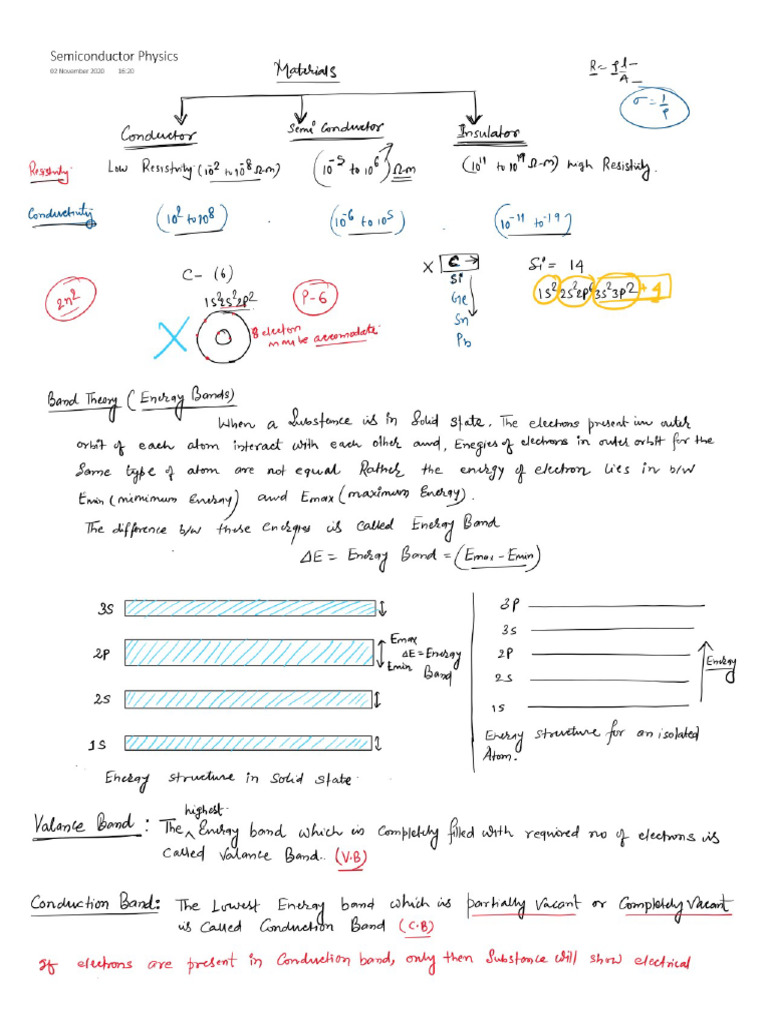 Semiconductor Physics
02 November 2020 16:20
Materials
R = ρl/A
σ = 1/ρ
Conductor Semi Conductor Insulator
Resistivity Low Resistivity (10² to 10⁻⁸ Ω-m) (10⁻⁵ to 10⁶) Ω-m (10¹¹ to 10¹⁹ Ω-m) high Resistivity.
Conductivity (10² to 10⁸) (10⁻⁶ to 10⁵) (10⁻¹¹ to 10⁻¹⁹)
2n²
C - (6)
1s²2s²2p²
P-6
8 electron
may be accomodate
X C →
Si
Ge
Sn
Pb
Si = 14
1s² 2s² 2p⁶ 3s² 3p² + 4
Band Theory (Energy Bands)
When a Substance is in Solid State, The electrons present in outer
orbit of each atom interact with each other and, Enegies of electrons in outer orbit for the
Same type of atom are not equal Rather the energy of electron lies in b/w
Emin (mimimum Energy) and Emax (maximum Energy).
The difference b/w these energies is called Energy Band
ΔE = Energy Band = (Emax - Emin)
3S
2P
Emax
ΔE = Energy
Band
Emin
2S
1S
Energy structure in Solid State
3P
3S
2P
2S
1S
Energy
Energy structure for an isolated
Atom.
Valance Band : The highest Energy band which is Completely filled with required no of electrons is
Called Valance Band.. (V.B)
Conduction Band: The Lowest Energy band which is partially Vacant or Completely Vacant
is Called Conduction Band (C.B)
If electrons are present in Conduction band, only then Substance will show electrical